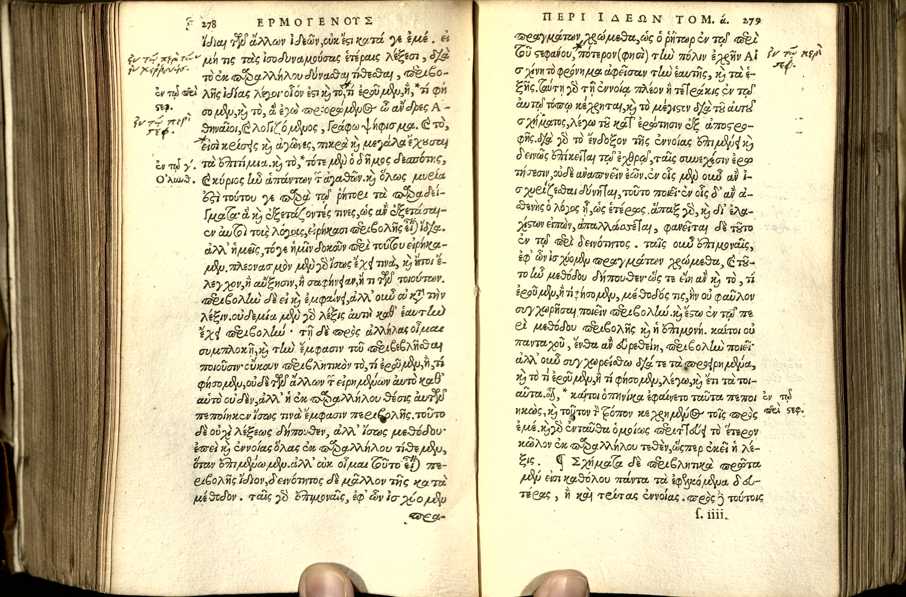 278 ΕΡΜΟΓΕΝΟΥΣ
ἴδιαι τῶν ἄλλων ἰδεῶν, οὐκ ἔστι κατά γε ἐμέ. εἰ
μή τις τὰς ἰσοδυναμούσας ἑτέραις λέξεσι, διὰ
τὸ ἐκ παραλλήλου δύνασθαι τίθεσθαι, περιβο-
λῆς ἰδίας λέγοι· οἷόν ἐστι καὶ τὸ, τί ἐροῦμεν, ἢ, τί φή
σομεν, καὶ τὸ, ἃ ἐγὼ ὦ ἄνδρες Ἀ-
θηναῖοι, καὶ λογιζόμενος, γράφω ψήφισμα. καὶ τὸ,
καὶ ἀγῶνες, πικρὰ καὶ μεγάλα ἔχουσι
τὰ ἐπιτίμια. καὶ τὸ, τότε μὲν ὁ δῆμος δεσπότης,
καὶ κύριος ἦν ἁπάντων τῶν ἀγαθῶν. καὶ ὅλως μυρία
ἐστὶ τούτου γε παρὰ τῷ ῥήτορι τὰ παραδεί-
γματα ἃ καὶ ἐξετάζοντές τινες, ὡς ἂν ἐξετάσαι-
εν αὐτοὶ τοὺς λόγους, εἰρήκασι περιβολῆς εἶναι ἴδια.
ἀλλ' ἡμεῖς, τό γε ἡμῖν δοκοῦν περὶ τούτου εἰρήκα-
μεν. πλεονασμὸν μὲν γὰρ ἴσως ἔχει τινὰ, καὶ ἤτοι ἔ-
λεγχον, ἢ αὔξησιν, ἢ σαφήνειαν, ἤ τι τῶν τοιούτων.
περιβολὴν δὲ εἰ καὶ ἐμφαίνει, ἀλλ' οὖν οὐ κατὰ τὴν
λέξιν. οὐδεμία μὲν γὰρ λέξις αὐτὴ καθ' ἑαυτὴν
ἔχει περιβολήν· τῇ δὲ πρὸς ἀλλήλας οἶμαι
συμπλοκῇ, καὶ τὴν ἔμφασιν τοῦ περιβεβλῆσθαι
ποιοῦσιν· οὔκουν περιβλητικὸν τὸ, τί ἐροῦμεν, ἢ, τί
φήσομεν, οὐδὲ τῶν ἄλλων τῶν εἰρημένων αὐτὸ καθ'
αὑτὸ οὐδὲν, ἀλλ' ἡ ἐκ παραλλήλου θέσις αὐτῶν
πεποίηκεν ἴσως τινὰ ἔμφασιν περιβολῆς. τοῦτο
δὲ οὐ λέξεως δήπουθεν, ἀλλ' ἴσως μεθόδου·
ἐπεὶ καὶ ἐννοίας ὅλας ἐκ παραλλήλου τίθεμεν,
ὅταν ἐπιμένωμεν. ἀλλ' οὐκ οἶμαι τοῦτο εἶναι πε-
ριβολῆς ἴδιον, δεινότητος δὲ μᾶλλον τῆς κατὰ
μέθοδον. ταῖς γὰρ ἐπιμοναῖς, ἐφ' ὧν ἰσχύομεν
πρα-
ἐν τῷ περὶ
στεφ.
ἐν τῷ περὶ
στεφ.
ἐν τῷ γ΄.
Ὀλυνθ.
ΠΕΡΙ ΙΔΕΩΝ ΤΟΜ. ά. 279
πραγμάτων, χρώμεθα, ὡς ὁ ῥήτωρ ἐν τῷ περὶ
τοῦ στεφάνου, πότερον (φησὶ) τὴν πόλιν ἐχρῆν Αἰ
σχίνη τὸ φρόνημα ἀφεῖσαν τὴν ἑαυτῆς, καὶ τὰ ἑ-
ξῆς. ταύτῃ γὰρ τῇ ἐννοίᾳ πλέον ἢ τετράκις ἐν τῷ
αὐτῷ τόπῳ κέχρηται, καὶ τὸ μέγιστον διὰ τοῦ αὐτοῦ
σχήματος, λέγω τοῦ κατ' ἐρώτησιν ἐξ ἀποστρο-
φῆς. διὰ γὰρ τὸ ἔνδοξον τῆς ἐννοίας ἐπιμένει καὶ
δεινῶς ἐπίκειται τῷ ἐχθρῷ, ταῖς συνεχέσιν ἐρω
τήσεσιν, οὐδὲ ἀναπνεῖν ἐῶν. ἐν οἷς μὲν οὖν ἂν ἰ-
σχυρίζεσθαι δύνηται, τοῦτο ποιεῖ· ἐν οἷς δ' ἂν ἀ-
σθενὴς ὁ λόγος ᾖ, ὡς ἑτέρως. ἅπαξ γὰρ, καὶ δι' ἐλα-
χίστων εἰπὼν, ἀπαλλάττεται, φανεῖται δὲ τοῦτο
ἐν τῷ περὶ δεινότητος. ταῖς οὖν ἐπιμοναῖς,
ἐφ' ὧν ἰσχύομεν πραγμάτων χρώμεθα, καὶ τοῦ-
το ἦν μεθόδου δήπουθεν· ὥστε εἴη ἂν καὶ τὸ, τί
ἐροῦμεν, ἢ τί φήσομεν, μέθοδός τις, ἣν οὐ φαῦλον
συγχωρῆσαι ποιεῖν περιβολήν. καὶ ἔστω ἐν τῷ πε-
ρὶ μεθόδου περιβολῆς καὶ ἡ ἐπιμονή. καίτοι οὐ
πανταχοῦ, ἔνθα ἂν εὑρεθείη, περιβολὴν ποιεῖ·
ἀλλ' οὖν συγκεχωρείσθω διά τε τὰ προειρημένα,
καὶ τὸ τί ἐροῦμεν, ἢ τί φήσομεν, λέγω, καὶ ἔτι τὰ τοι-
αῦτα. καίτοι ὁπηνίκα ἐφαίνετο ταῦτα πεποι
ηκὼς, καὶ τοῦτον τὸν τρόπον κεχρημένος τοῖς πρὸς
ἐμέ. καὶ γὰρ ἐνταῦθα ὁμοίως περιττεύει τὸ ἕτερον
κῶλον ἐκ παραλλήλου τεθὲν, ὥσπερ ἐκεῖ ἡ λέ-
ξις. ¶ Σχήματα δὲ περιβλητικὰ πρῶτα
μέν εἰσι καθόλου πάντα τὰ ἐφελκόμενα δευ-
τέρας, ἢ καὶ τρίτας ἐννοίας. πρὸς δὲ τούτοις
ſ. iiii.
ἐν τῷ περὶ
στεφ.
ἐν τῷ
περὶ στεφ.